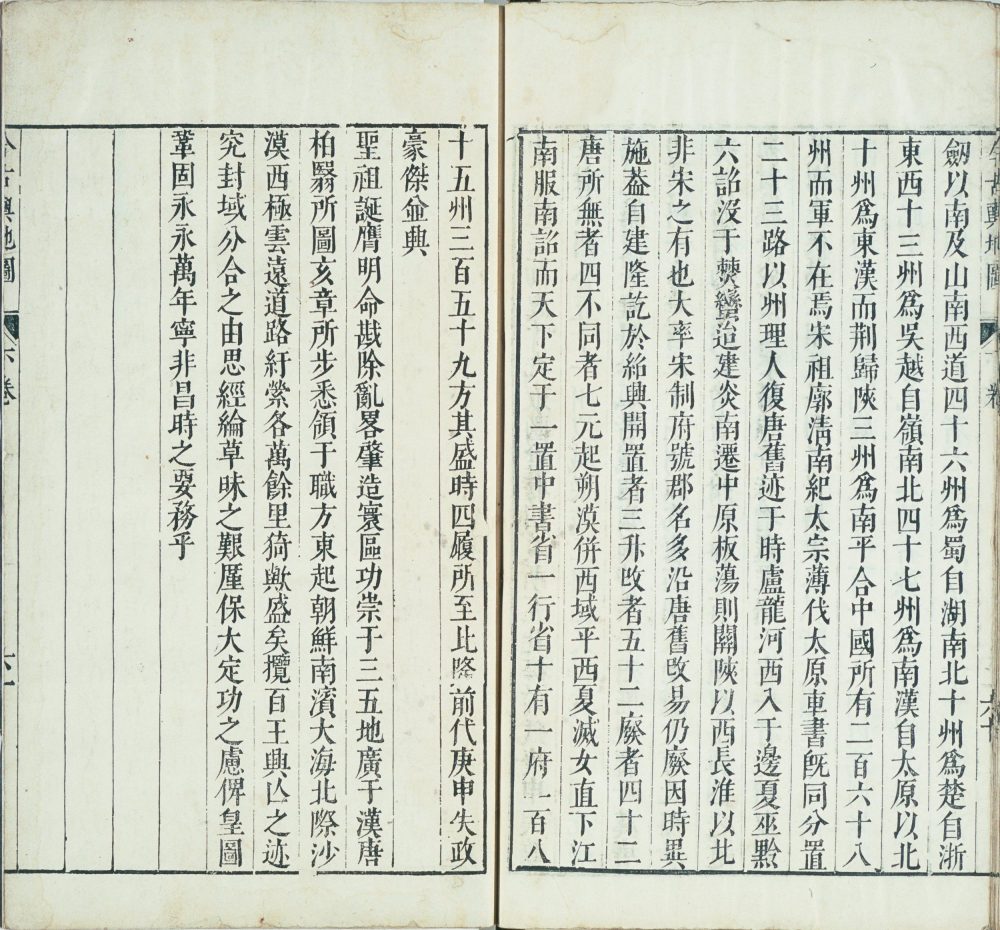 劒以南及山南西道四十六州爲蜀自湖南北十州爲楚自浙
東西十三州爲吳越自嶺南北四十七州爲南漢自太原以北
十州爲東漢而荆歸陝三州爲南平合中國所有二百六十八
州而軍不在焉宋祖廓淸南紀太宗薄伐太原車書旣同分置
二十三路以州理人復唐舊迹于時盧龍河西入于邊夏巫黔
六詔沒于僰蠻迨建炎南遷中原板蕩則關陝以西長淮以北
非宋之有也大率宋制府號郡名多沿唐舊攺易仍廢因時異
施葢自建隆訖於紹興開置者三升攺者五十二廢者四十二
唐所無者四不同者七元起朔漠併西域平西夏滅女直下江
南服南詔而天下定于一置中書省一行省十有一府一百八
十五州三百五十九方其盛時四履所至比隆前代庚申失政
豪傑並興
聖祖誕膺明命戡除亂畧肇造寰區功崇于三五地廣于漢唐
柏翳所圖亥章所步悉領于職方東起朝鮮南濱大海北際沙
漠西極雲遠道路紆縈各萬餘里猗歟盛矣攬百王興亾之迹
究封域分合之由思經綸草昧之艱厪保大定功之慮俾皇圖
鞏固永永萬年寧非昌時之要務乎